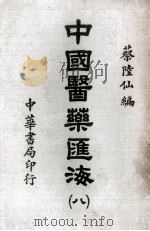 蔡陸仙編
中國醫藥匯海
(八)
中華書局印行
http://www.cndgn.com